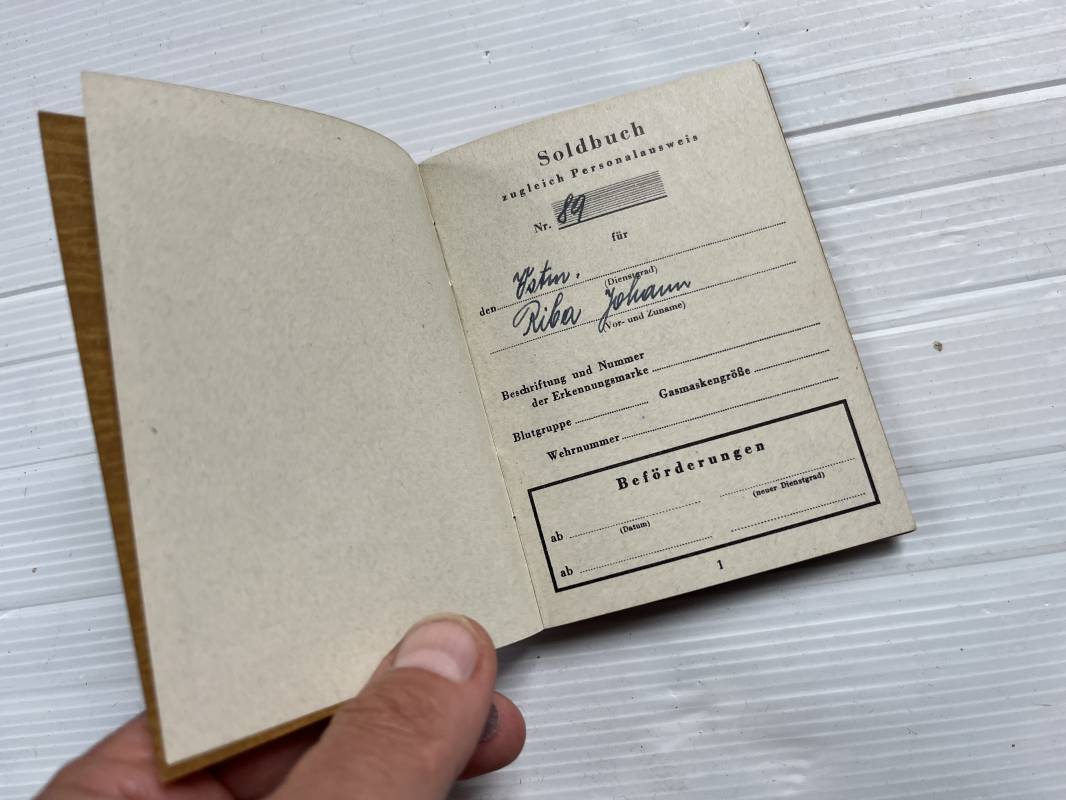 Soldbuch
zugleich Personalausweis
Nr. 89
für
den Vstm.
(Dienstgrad)
Riba Johann
(Vor- und Zuname)
Beschriftung und Nummer
der Erkennungsmarke
Blutgruppe Gasmaskengröße
Wehrnummer
Beförderungen
ab
(Datum) (neuer Dienstgrad)
ab
1